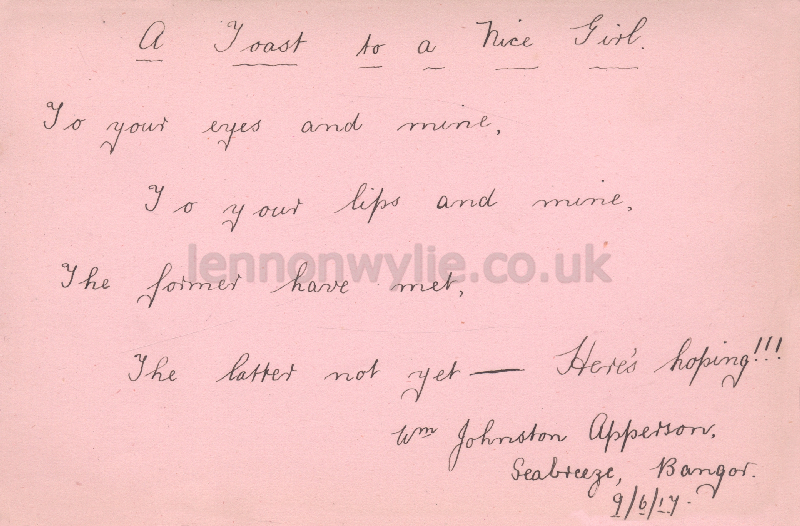 A Toast to a Nice Girl.
To your eyes and mine,
To your lips and mine,
lennonwylie.co.uk
The former have met,
The latter not yet — Here's hoping!!!
Wm Johnston Apperson.
Seabreeze, Bangor.
9/6/17.